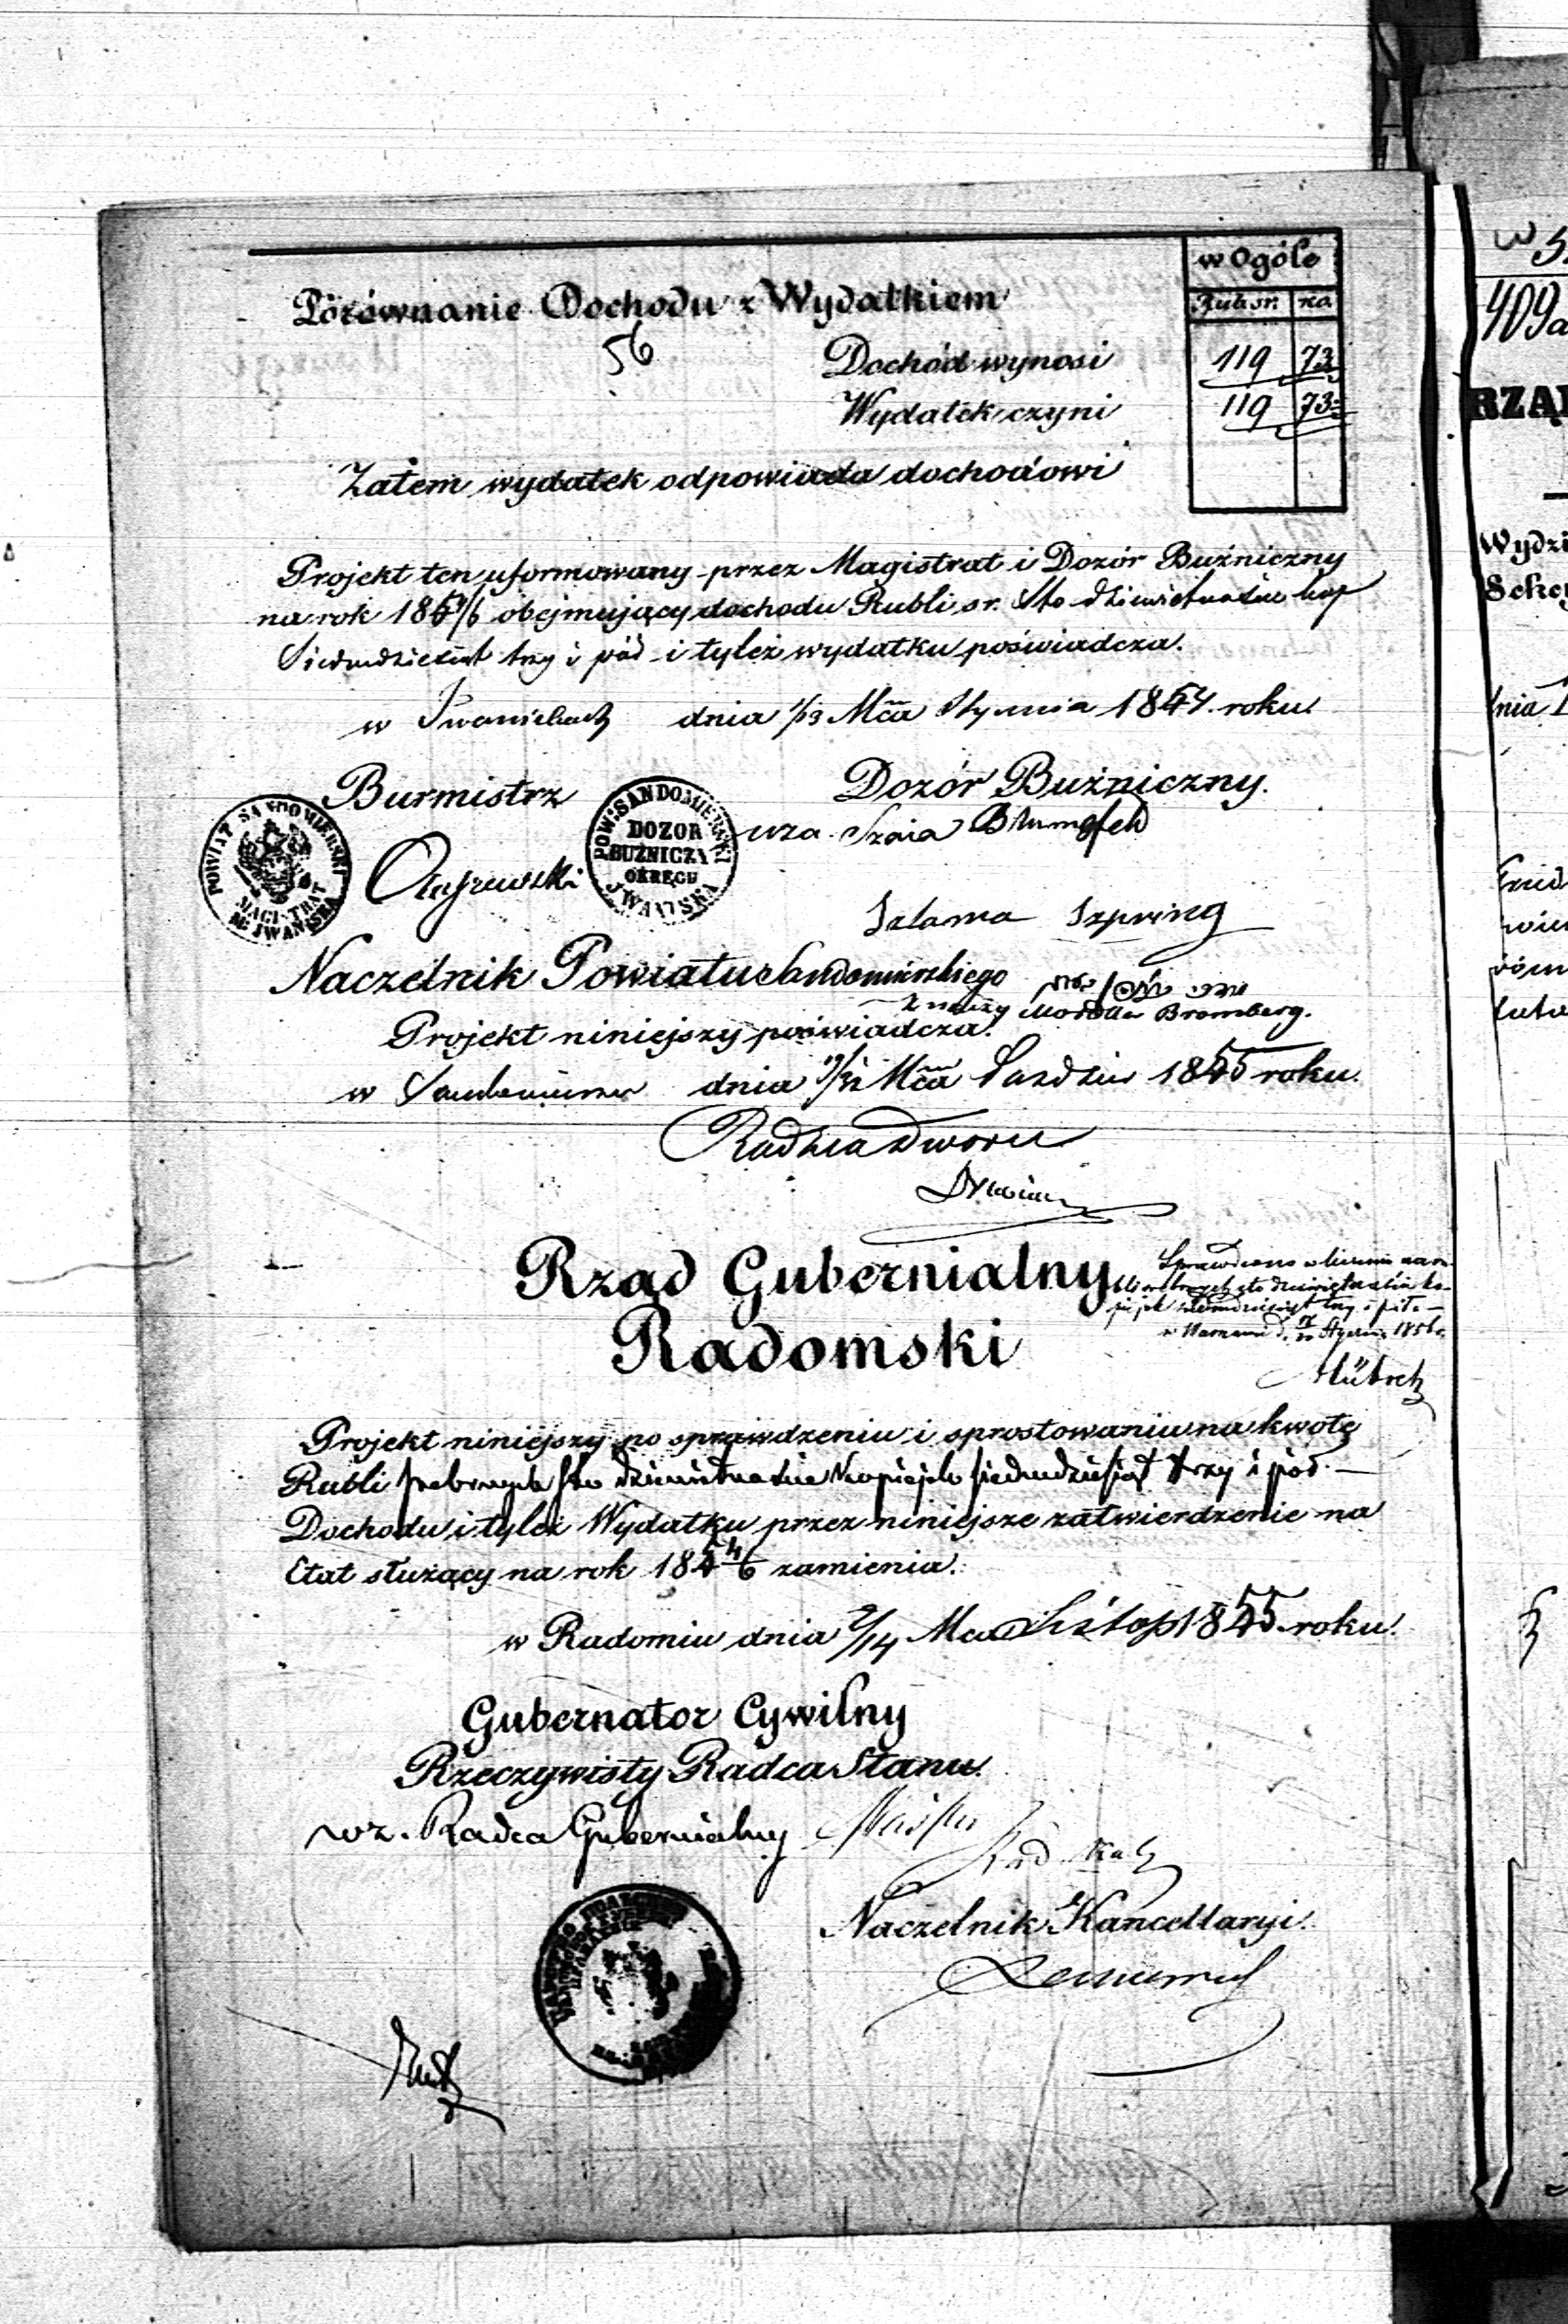 w Ogóle
Rub sr. ko
Porównanie Dochodu z Wydatkiem
56
Dochód wynosi 119 73½
Wydatek czyni 119 73½
Zatem wydatek odpowiada dochodowi
Projekt ten uformowany przez Magistrat i Dozór Bużniczny
na rok 1854/6 obejmujący dochodu Rubli sr. Sto dziewiętnaście kop
Siedmdziesiąt trzy i pół i tyleż wydatku poświadcza.
w Iwaniskach dnia 1/13 Mca Stycznia 1854 roku.
Burmistrz Dozór Bużniczny.
POWIAT SANDOMIERSKI
MAGISTRAT
M. JWAŃISKA
POW: SANDOMIERSKI
DOZOR
BUŻNICZY
OKRĘGU
JWANISKA
Szaia Blumfeld
Szlama Szpring
Naczelnik Powiatu Sandomierskiego
Znaczy Bromberg.
Projekt niniejszy poświadcza.
w Sandomierzu dnia 19/31 Mca Paździer 1855 roku.
Radzca Dworu
Rząd Gubernialny
Radomski
Sprawdzono
sto dziewiętnaście ko-
piejek siedmdziesiąt trzy i pół
w Warszawie d. Stycznia 1856 r.
Projekt niniejszy po sprawdzeniu i sprostowaniu na kwotę
Rubli srebrnych sto dziewiętnaście Kopiejek siedmdziesiąt trzy i pół
Dochodu i tyleż Wydatku przez niniejsze zatwierdzenie na
Etat służący na rok 185 4/6 zamienia.
w Radomiu dnia 2/14 Mca Listop 1855 roku.
Gubernator Cywilny
Rzeczywisty Radca Stanu.
wz. Radca Gubernialny
Naczelnik Kancellaryi.
w 5
409a
RZĄ
Wydzi
Sekc
nia 1